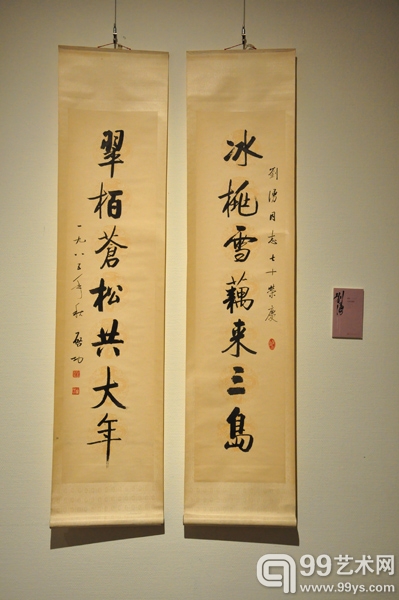 冰桃雪藕来三島
劉湧同志七十榮慶
翠栢蒼松共大年
一九八三年秋 啓功
99艺术网
www.99ys.com